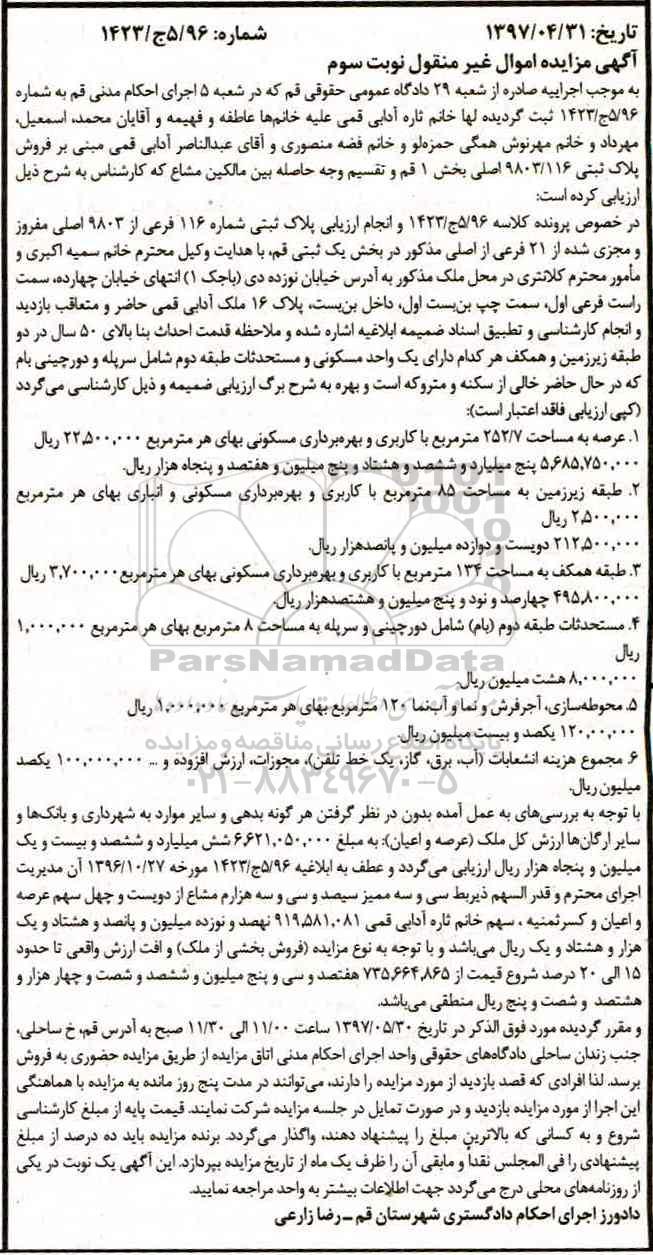 تاریخ: ۱۳۹۷/۰۴/۳۱ شماره: ۵/۹۶ج/۱۴۲۳
آگهی مزایده اموال غیر منقول نوبت سوم
به موجب اجراییه صادره از شعبه ۲۹ دادگاه عمومی حقوقی قم که در شعبه ۵ اجرای احکام مدنی قم به شماره
۵/۹۶ج/۱۴۲۳ ثبت گردیده لها خانم ثاره آدابی قمی علیه خانم‌ها عاطفه و فهیمه و آقایان محمد، اسمعیل،
مهرداد و خانم مهرنوش همگی حمزه‌لو و خانم فضه منصوری و آقای عبدالناصر آدابی قمی مبنی بر فروش
پلاک ثبتی ۹۸۰۳/۱۱۶ اصلی بخش ۱ قم و تقسیم وجه حاصله بین مالکین مشاع که کارشناس به شرح ذیل
ارزیابی کرده است:
در خصوص پرونده کلاسه ۵/۹۶ج/۱۴۲۳ و انجام ارزیابی پلاک ثبتی شماره ۱۱۶ فرعی از ۹۸۰۳ اصلی مفروز
و مجزی شده از ۲۱ فرعی از اصلی مذکور در بخش یک ثبتی قم، با هدایت وکیل محترم خانم سمیه اکبری و
مأمور محترم کلانتری در محل ملک مذکور به آدرس خیابان نوزده دی (باجک ۱) انتهای خیابان چهارده، سمت
راست فرعی اول، سمت چپ بن‌بست اول، داخل بن‌بست، پلاک ۱۶ ملک آدابی قمی حاضر و متعاقب بازدید
و انجام کارشناسی و تطبیق اسناد ضمیمه ابلاغیه اشاره شده و ملاحظه قدمت احداث بنا بالای ۵۰ سال در دو
طبقه زیرزمین و همکف هر کدام دارای یک واحد مسکونی و مستحدثات طبقه دوم شامل سرپله و دورچینی بام
که در حال حاضر خالی از سکنه و متروکه است و بهره به شرح برگ ارزیابی ضمیمه و ذیل کارشناسی می‌گردد
(کپی ارزیابی فاقد اعتبار است):
۱. عرصه به مساحت ۲۵۲/۷ مترمربع با کاربری و بهره‌برداری مسکونی بهای هر مترمربع ۲۲,۵۰۰,۰۰۰ ریال
۵,۶۸۵,۷۵۰,۰۰۰ پنج میلیارد و ششصد و هشتاد و پنج میلیون و هفتصد و پنجاه هزار ریال.
۲. طبقه زیرزمین به مساحت ۸۵ مترمربع با کاربری و بهره‌برداری مسکونی و انباری بهای هر مترمربع
۲,۵۰۰,۰۰۰ ریال
۲۱۲,۵۰۰,۰۰۰ دویست و دوازده میلیون و پانصدهزار ریال.
۳. طبقه همکف به مساحت ۱۳۴ مترمربع با کاربری و بهره‌برداری مسکونی بهای هر مترمربع ۳,۷۰۰,۰۰۰ ریال
۴۹۵,۸۰۰,۰۰۰ چهارصد و نود و پنج میلیون و هشتصدهزار ریال.
۴. مستحدثات طبقه دوم (بام) شامل دورچینی و سرپله به مساحت ۸ مترمربع بهای هر مترمربع ۱,۰۰۰,۰۰۰
ریال
۸,۰۰۰,۰۰۰ هشت میلیون ریال.
۵. محوطه‌سازی، آجرفرش و نما و آب‌نما ۱۲۰ مترمربع بهای هر مترمربع ۱,۰۰۰,۰۰۰ ریال
۱۲۰,۰۰,۰۰۰ یکصد و بیست میلیون ریال.
۶. مجموع هزینه انشعابات (آب، برق، گاز، یک خط تلفن)، مجوزات، ارزش افزوده و ... ۱۰۰,۰۰۰,۰۰۰ یکصد
میلیون ریال.
با توجه به بررسی‌های به عمل آمده بدون در نظر گرفتن هر گونه بدهی و سایر موارد به شهرداری و بانک‌ها و
سایر ارگان‌ها ارزش کل ملک (عرصه و اعیان): به مبلغ ۶,۶۲۱,۰۵۰,۰۰۰ شش میلیارد و ششصد و بیست و یک
میلیون و پنجاه هزار ریال ارزیابی می‌گردد و عطف به ابلاغیه ۵/۹۶ج/۱۴۲۳ مورخه ۱۳۹۶/۱۰/۲۷ آن مدیریت
اجرای محترم و قدر السهم ذیربط سی و سه ممیز سیصد و سی و سه هزارم مشاع از دویست و چهل سهم عرصه
و اعیان و کسرثمنیه ، سهم خانم ثاره آدابی قمی ۹۱۹,۵۸۱,۰۸۱ نهصد و نوزده میلیون و پانصد و هشتاد و یک
هزار و هشتاد و یک ریال می‌باشد و با توجه به نوع مزایده (فروش بخشی از ملک) و افت ارزش واقعی تا حدود
۱۵ الی ۲۰ درصد شروع قیمت از ۷۳۵,۶۶۴,۸۶۵ هفتصد و سی و پنج میلیون و ششصد و شصت و چهار هزار و
هشتصد و شصت و پنج ریال منطقی می‌باشد.
و مقرر گردیده مورد فوق الذکر در تاریخ ۱۳۹۷/۰۵/۳۰ ساعت ۱۱/۰۰ الی ۱۱/۳۰ صبح به آدرس قم، خ ساحلی،
جنب زندان ساحلی دادگاه‌های حقوقی واحد اجرای احکام مدنی اتاق مزایده از طریق مزایده حضوری به فروش
برسد. لذا افرادی که قصد بازدید از مورد مزایده را دارند، می‌توانند در مدت پنج روز مانده به مزایده با هماهنگی
این اجرا از مورد مزایده بازدید و در صورت تمایل در جلسه مزایده شرکت نمایند. قیمت پایه از مبلغ کارشناسی
شروع و به کسانی که بالاترین مبلغ را پیشنهاد دهند، واگذار می‌گردد. برنده مزایده باید ده درصد از مبلغ
پیشنهادی را فی المجلس نقداً و مابقی آن را ظرف یک ماه از تاریخ مزایده بپردازد. این آگهی یک نوبت در یکی
از روزنامه‌های محلی درج می‌گردد جهت اطلاعات بیشتر به واحد مراجعه نمایید.
دادورز اجرای احکام دادگستری شهرستان قم - رضا زارعی
ParsNamadData
پایگاه اطلاع رسانی مناقصه و مزایده
۰۲۱-۸۸۳۴۹۶۷۰-۵